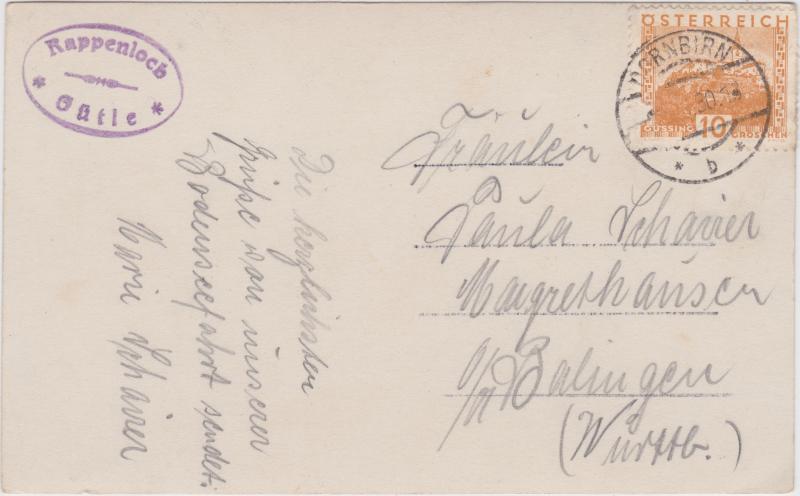 Rappenloch
* Gütle *
ÖSTERREICH
GÜSSING 10 GROSCHEN
DORNBIRN
* b *
Die herzlichsten
Grüße von unserer
Bodenseefahrt sendet:
Marie Schairer
Fräulein
Paula Schairer
Margrethausen
o/A Balingen
(Württb.)